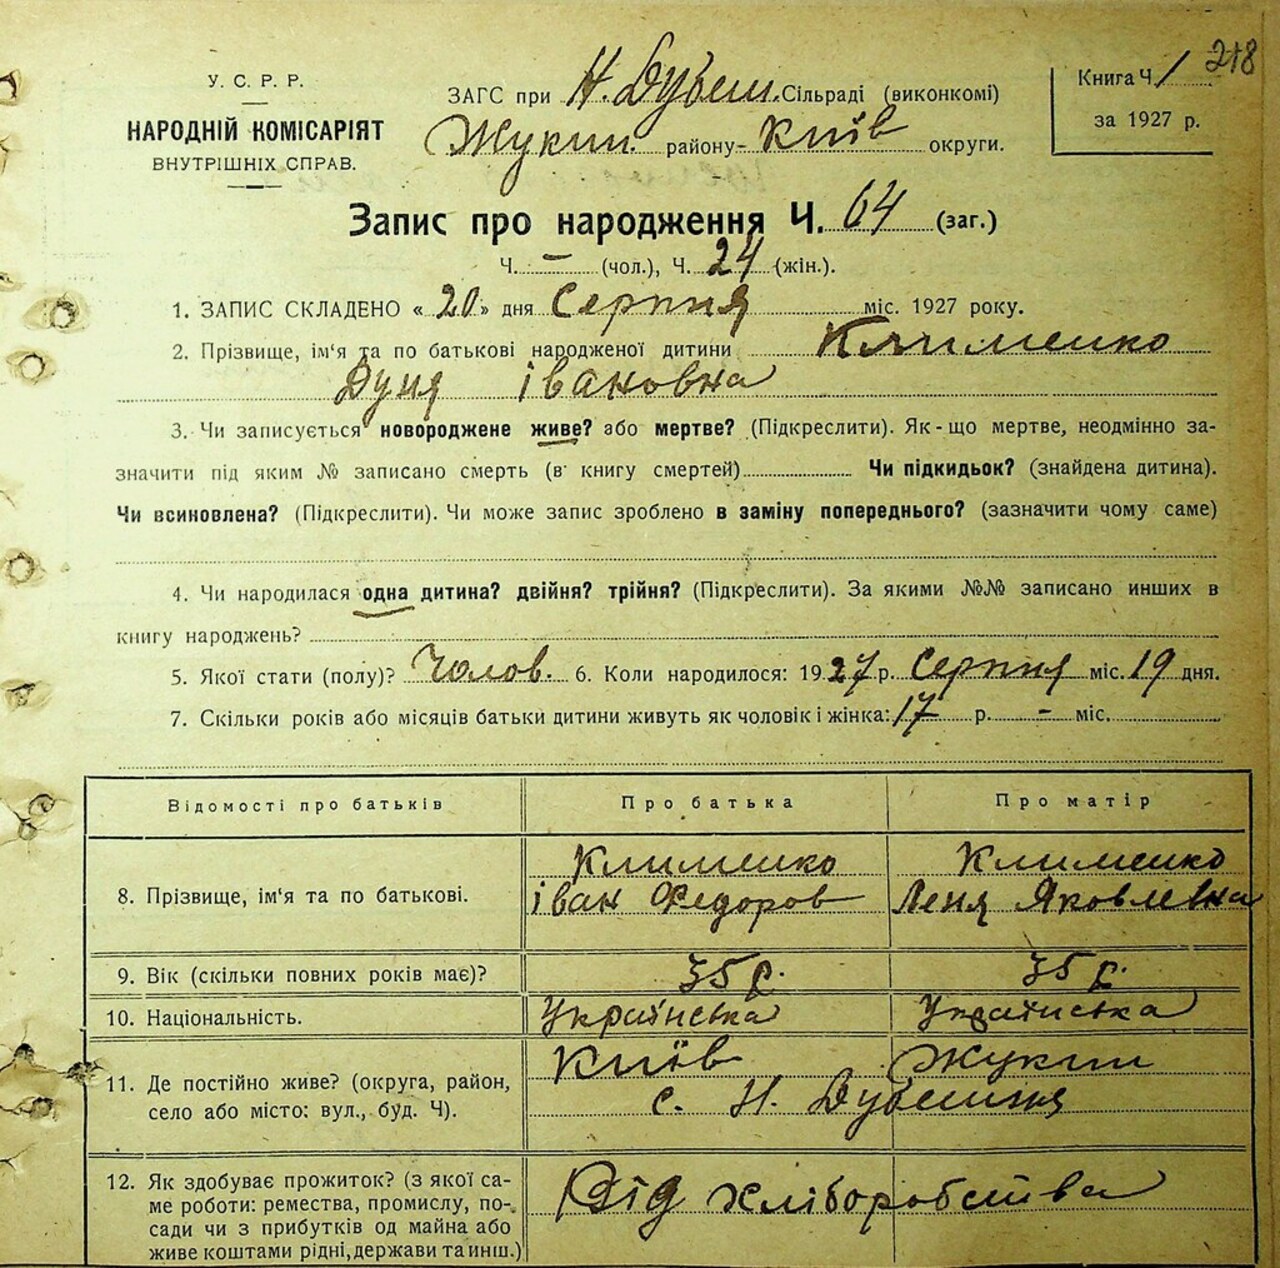 218
У. С. Р. Р.
НАРОДНІЙ КОМІСАРІЯТ
ВНУТРІШНІХ СПРАВ.
ЗАГС при Н. Дубеш. Сільраді (виконкомі)
Жукин. району- Київ округи.
Книга Ч. 1
за 1927 р.
Запис про народження Ч. 64 (заг.)
Ч. – (чол.), Ч. 24 (жін.).
1. ЗАПИС СКЛАДЕНО « 20 » дня Серпня міс. 1927 року.
2. Прізвище, ім'я та по батькові народженої дитини Клименко
Дуня івановна
3. Чи записується новороджене живе? або мертве? (Підкреслити). Як-що мертве, неодмінно за-
значити під яким № записано смерть (в книгу смертей) Чи підкидьок? (знайдена дитина).
Чи всиновлена? (Підкреслити). Чи може запис зроблено в заміну попереднього? (зазначити чому саме)
4. Чи народилася одна дитина? двійня? трійня? (Підкреслити). За якими №№ записано инших в
книгу народжень?
5. Якої стати (полу)? Чолов. 6. Коли народилося: 1927 р. Серпня міс. 19 дня.
7. Скільки років або місяців батьки дитини живуть як чоловік і жінка: 17 р. - міс.
Відомості про батьків Про батька Про матір
8. Прізвище, ім'я та по батькові.
Клименко Клименко
іван Федоров Леня Яковлевна
9. Вік (скільки повних років має)? 35 р. 35 р.
10. Національність. Українська Українська
11. Де постійно живе? (округа, район,
село або місто: вул., буд. Ч).
Київ Жукин
с. Н. Дубешня
12. Як здобуває прожиток? (з якої са-
ме роботи: ремества, промислу, по-
сади чи з прибутків од майна або
живе коштами рідні, держави та инш.)
Від хліборобства